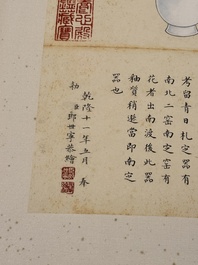 考留青日札定器有
南北二窑南定窑有
花者出南渡後此器
釉質稍遜當即南定
器也
乾隆十一年五月奉
勅臣郎世寧恭繪